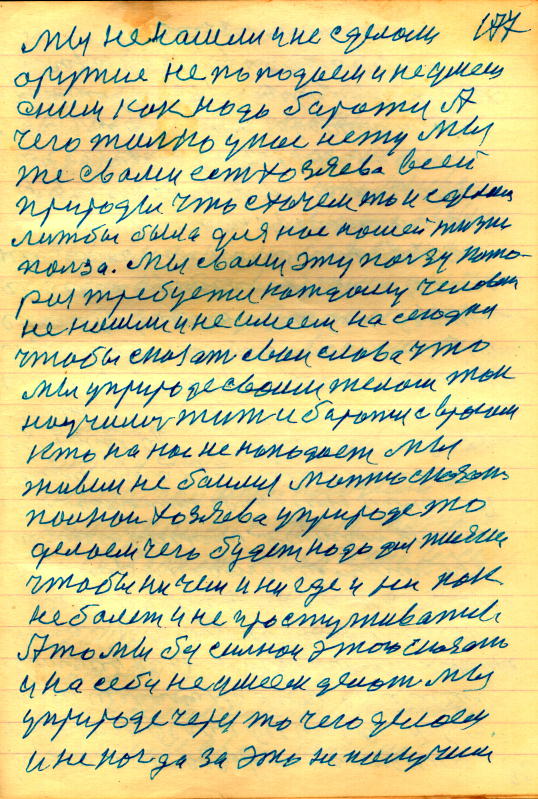 Мы не нашли и не сделали 177
оружие не попадаем и не умеем
сним как надо баротся А
чего жално у нас нету Мы
же свами ест хозяева всей
природы что схочем то и сделаем
лижбы была для нас нашей жизни
полза. Мы свами эту ползу кото-
рая требуется каждому человеку
не нашли и не имеем на сегодня
чтобы сказат свои слова что
мы у природе своим телом так
научимся жит и баротся с врагом
кто на нас не нападает Мы
живем не боимся можно сказать
полнаи хозяева у природе то
делаем чего будет надо для жизни
чтобы ни чем и ни где и ни как
не болет и не простуживатся.
А то мы бы силнои этого сказать
и на себи не умеем делат Мы
у природе через то чего делаем
и не когда за это не получим